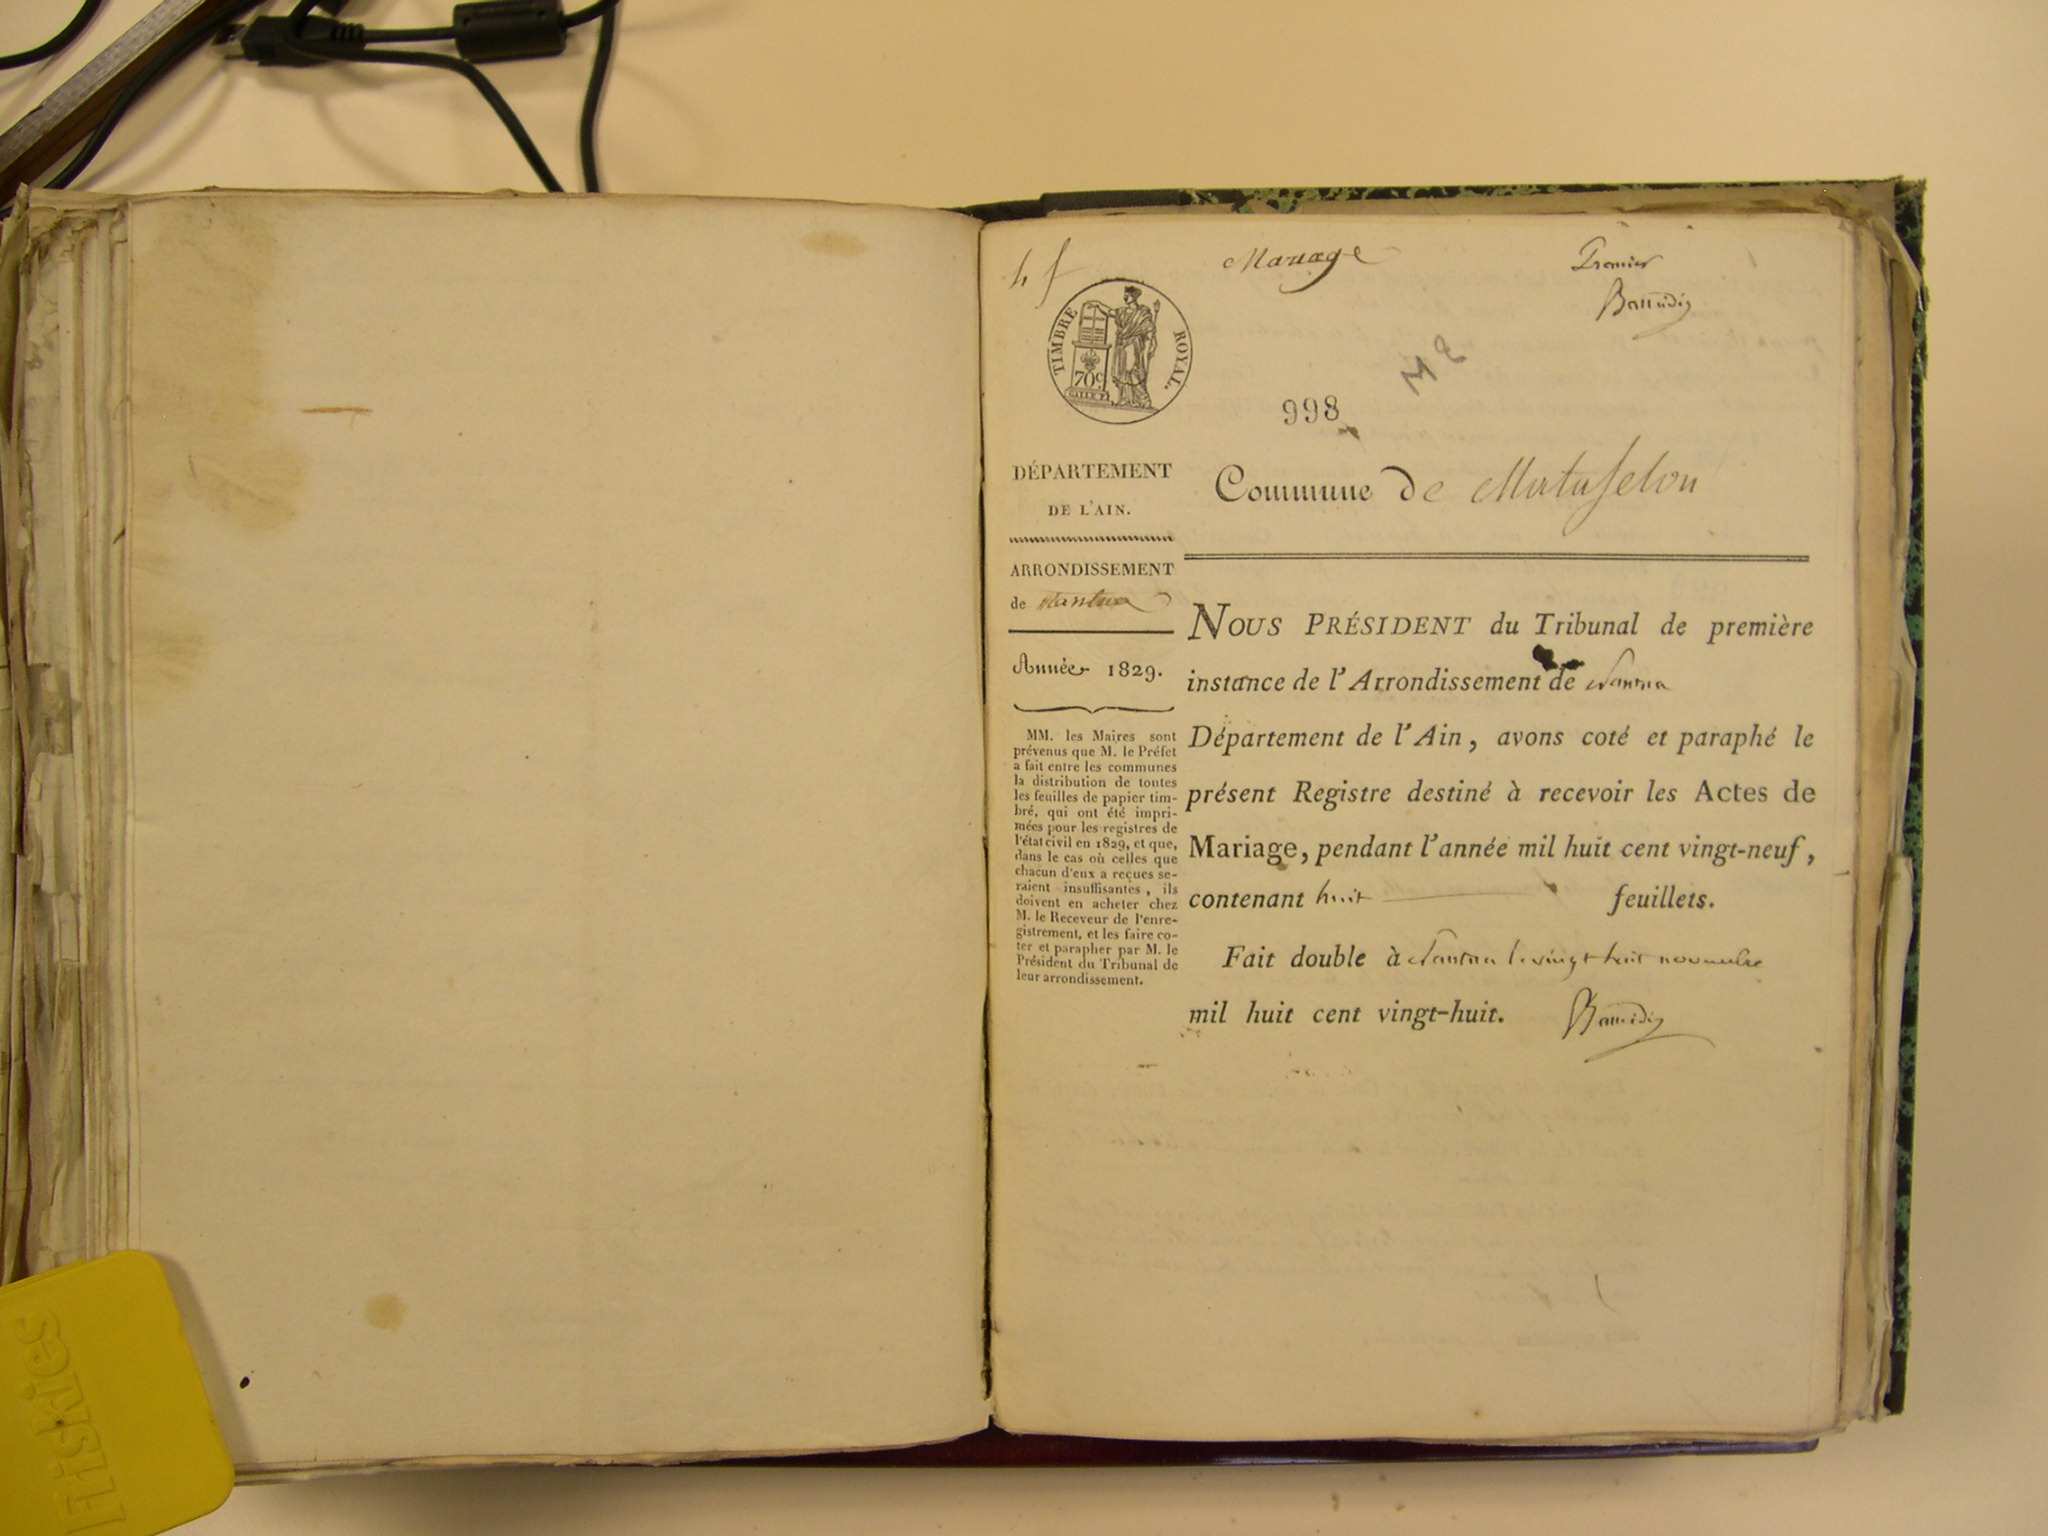 4 f
Mariage
Premier
TIMBRE ROYAL.
70c
998
DÉPARTEMENT
DE L'AIN.
ARRONDISSEMENT
de Nantua
Année 1829.
MM. les Maires sont
prévenus que M. le Préfet
a fait entre les communes
la distribution de toutes
les feuilles de papier tim-
bré, qui ont été impri-
mées pour les registres de
l'état civil en 1829, et que,
dans le cas où celles que
chacun d'eux a reçues se-
raient insuffisantes, ils
doivent en acheter chez
M. le Receveur de l'enre-
gistrement, et les faire co-
ter et parapher par M. le
Président du Tribunal de
leur arrondissement.
Commune de Matafelon
NOUS PRÉSIDENT du Tribunal de première
instance de l'Arrondissement de Nantua
Département de l'Ain, avons coté et paraphé le
présent Registre destiné à recevoir les Actes de
Mariage, pendant l'année mil huit cent vingt-neuf,
contenant huit feuillets.
Fait double à Nantua le vingt huit novembre
mil huit cent vingt-huit.